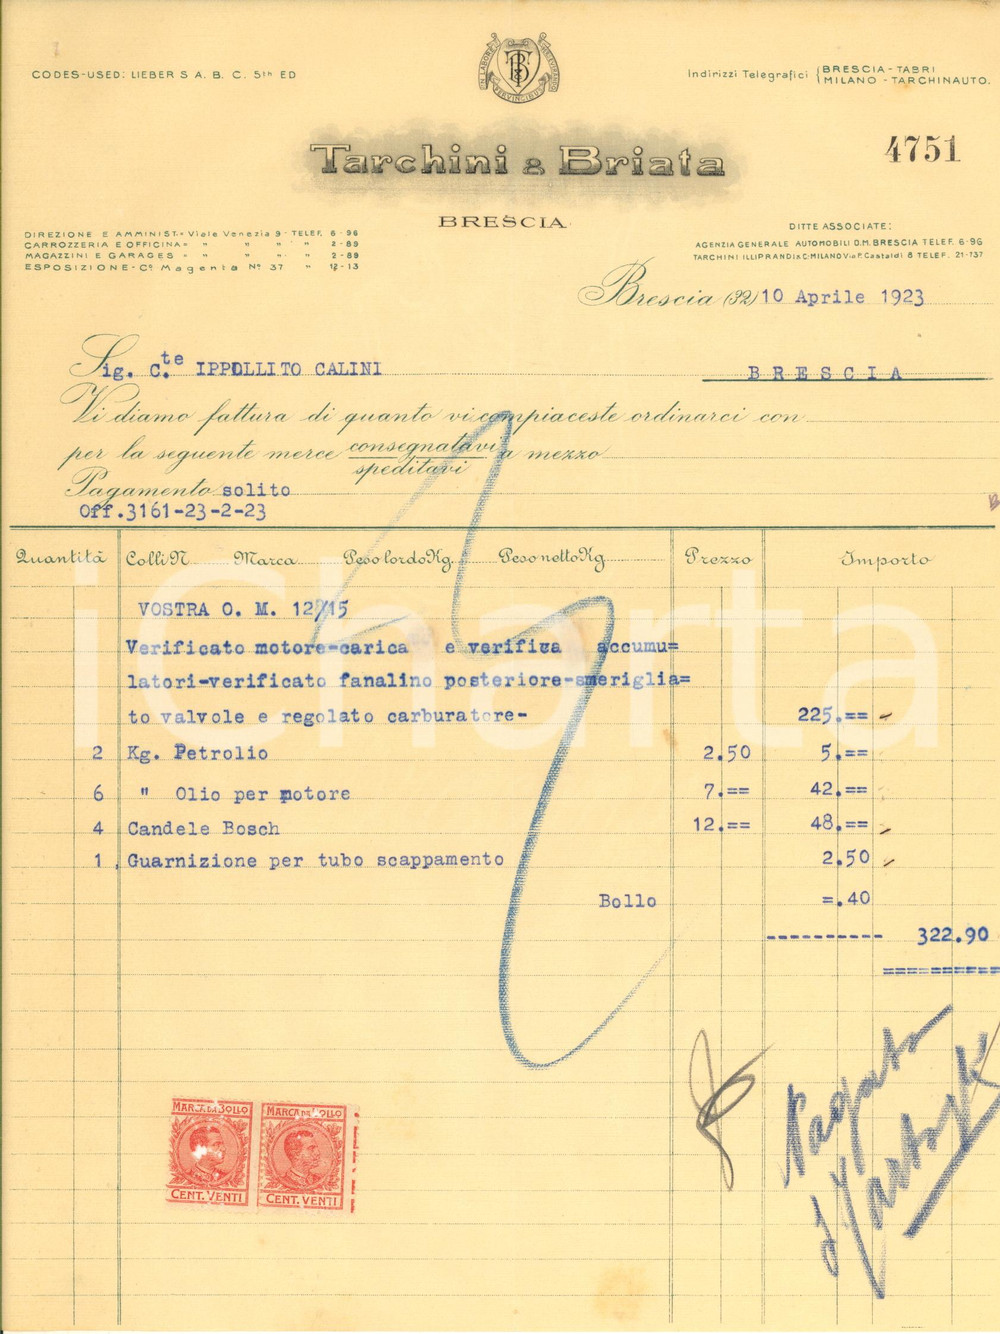 CODES-USED: LIEBER S A. B. C. 5th ED
IN LABORE PERVINCIMUS
TB
Indirizzi Telegrafici (BRESCIA - TABRI
(MILANO - TARCHINAUTO.
4751
Tarchini & Briata
BRESCIA
DIREZIONE E AMMINIST.= Viale Venezia 9 - TELEF. 6-96
CARROZZERIA E OFFICINA= " " " " 2-89
MAGAZZINI E GARAGES = " " " " 2-89
ESPOSIZIONE - Co Magenta No 37 " 12-13
DITTE ASSOCIATE:
AGENZIA GENERALE AUTOMOBILI O.M. BRESCIA TELEF. 6-96
TARCHINI ILLIPRANDI & C: MILANO Via P. Castaldi 8 TELEF. 21-737
Brescia (32) 10 Aprile 1923
Sig. C.te IPPOLLITO CALINI
BRESCIA
Vi diamo fattura di quanto vi compiaceste ordinarci con
per la seguente merce consegnatavi a mezzo
speditavi
Pagamento solito
Off.3161-23-2-23
Quantità Colli N. Marca Peso lordo Kg. Peso netto Kg. Prezzo Importo
VOSTRA O. M. 12/15
Verificato motore-carica e verifica accumu=
latori-verificato fanalino posteriore-smeriglia=
to valvole e regolato carburatore- 225.==
2 Kg. Petrolio 2.50 5.==
6 " Olio per motore 7.== 42.==
4 Candele Bosch 12.== 48.==
1, Guarnizione per tubo scappamento 2.50
Bollo =.40
---------- 322.90
==========
MARCA DA BOLLO MARCA DA BOLLO
CENT. VENTI CENT. VENTI
iCharta